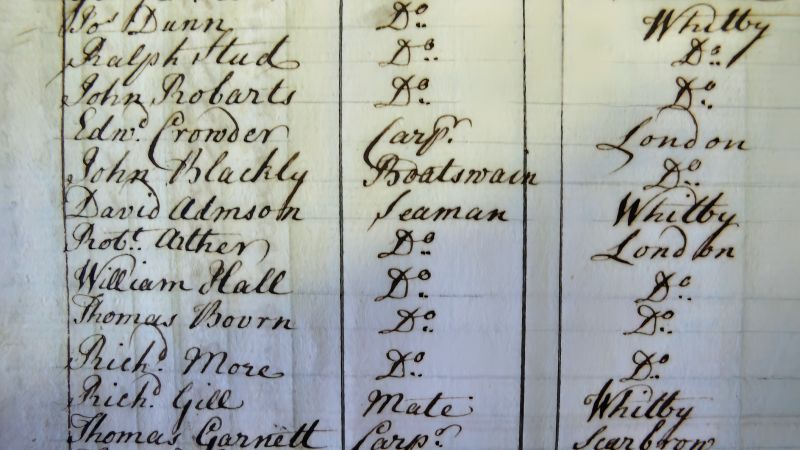 Jos Dunn Do Whitby
Ralph Stud Do Do
John Robarts Do Do
Edwd Crowder Carpr London
John Blackly Boatswain Do
David Admson Seaman Whitby
Robt Arther Do London
William Hall Do Do
Thomas Bovrn Do Do
Richd More Do Do
Richd Gill Mate Whitby
Thomas Garnett Carpr Scarbrow